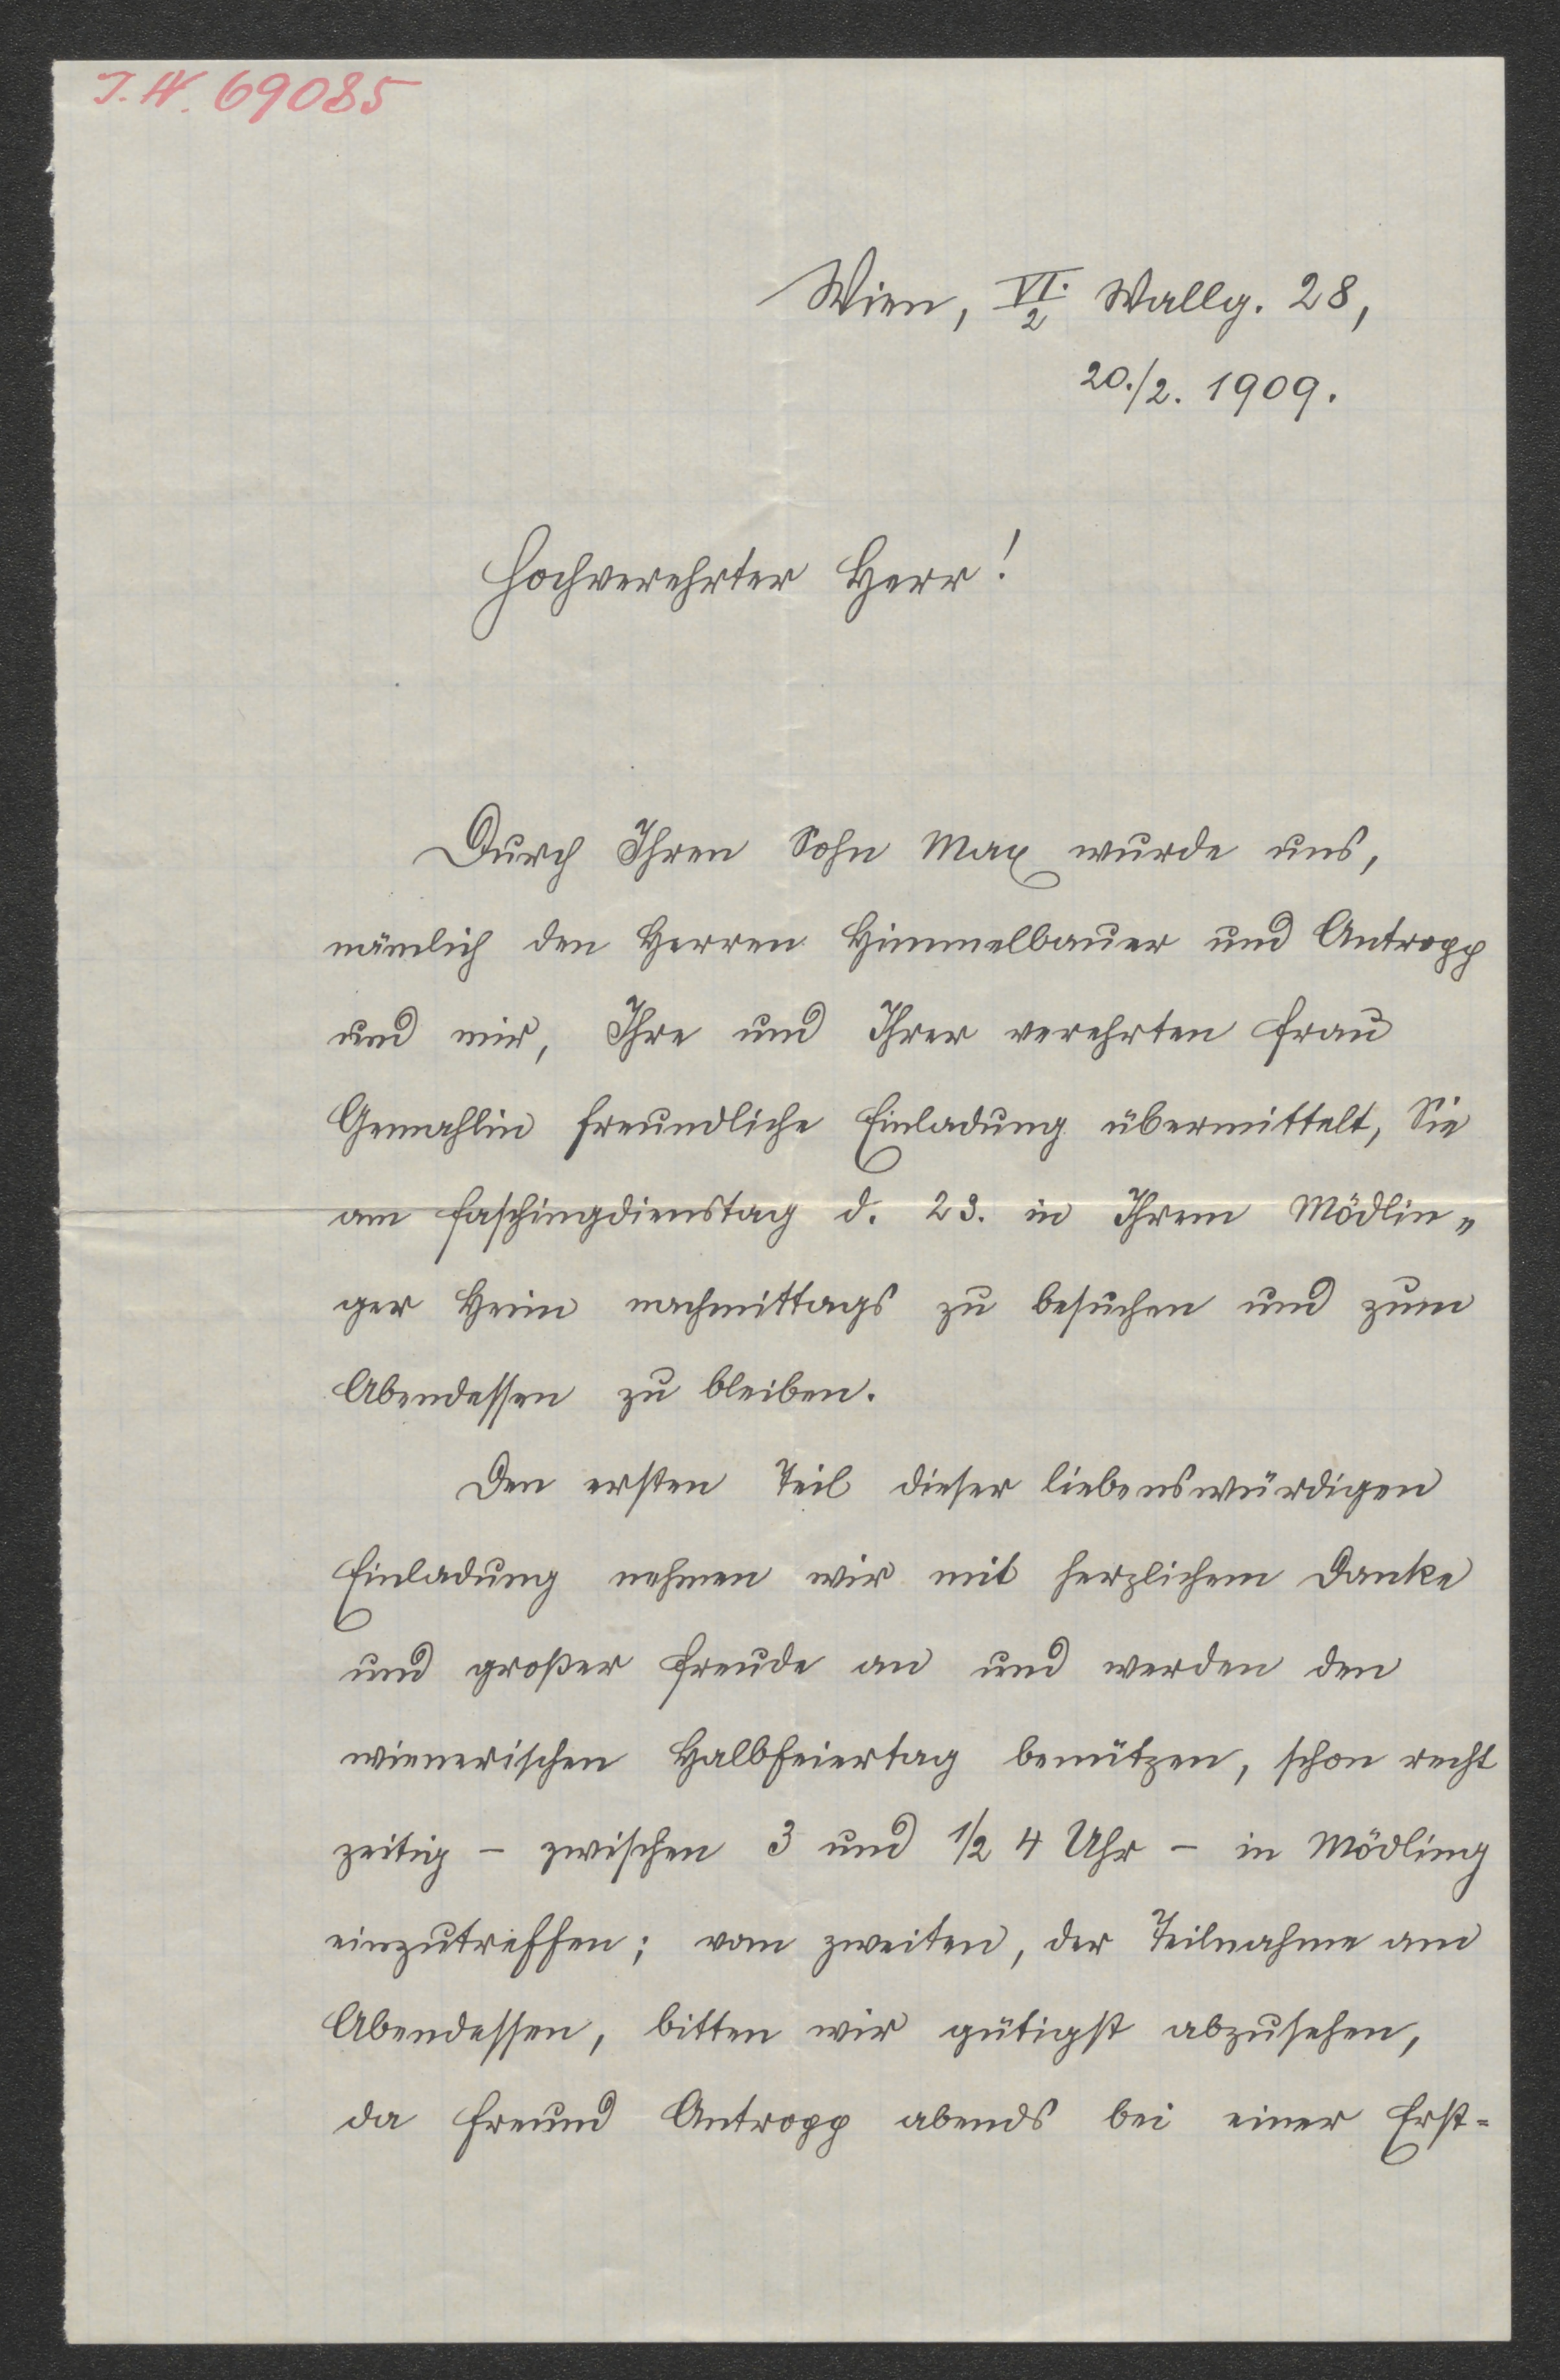 J.N. 69085
Wien, VI./2 Wallg. 28,
20./2. 1909.
Hochverehrter Herr!
Durch Ihren Sohn Max wurde uns,
nämlich den Herren Himmelbauer und Antropp
und mir, Ihre und Ihrer verehrten Frau
Gemahlin freundliche Einladung übermittelt, Sie
am Faschingdienstag d. 23. in Ihrem Mödlin„
ger Heim nachmittags zu besuchen und zum
Abendessen zu bleiben.
Den ersten Teil dieser liebenswürdigen
Einladung nehmen wir mit herzlichem Danke
und großer Freude an und werden den
wienerischen Halbfeiertag benützen, schon recht
zeitig – zwischen 3 und 1/2 4 Uhr – in Mödling
einzutreffen; vom zweiten, der Teilnahme am
Abendessen, bitten wir gütigst abzusehen,
da Freund Antropp abends bei einer Erst=